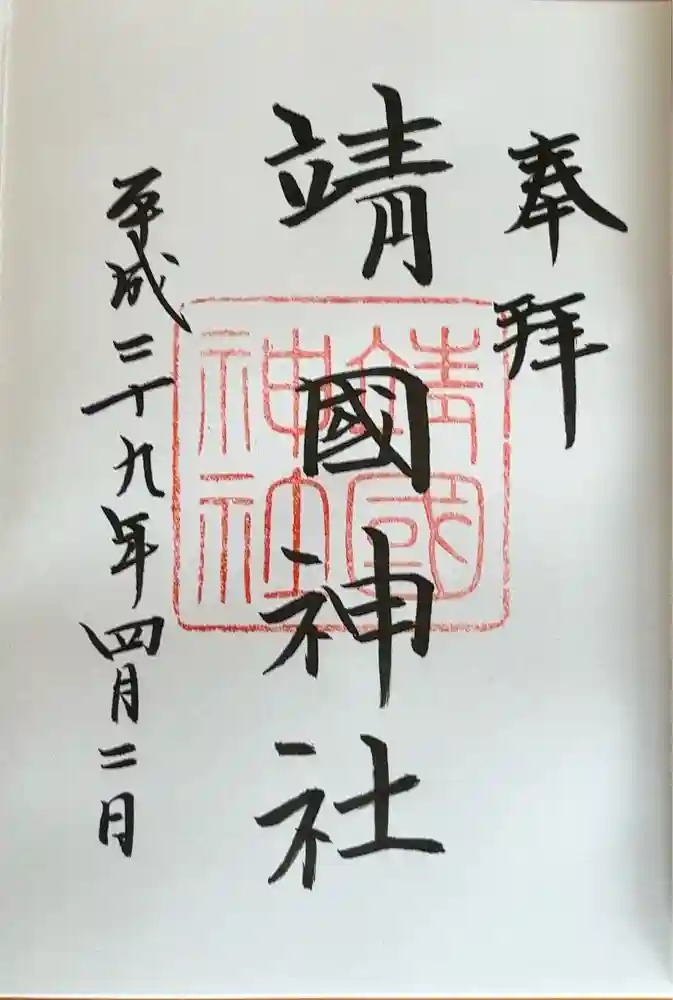 奉拝
靖國神社
靖國神社
平成二十九年四月二日